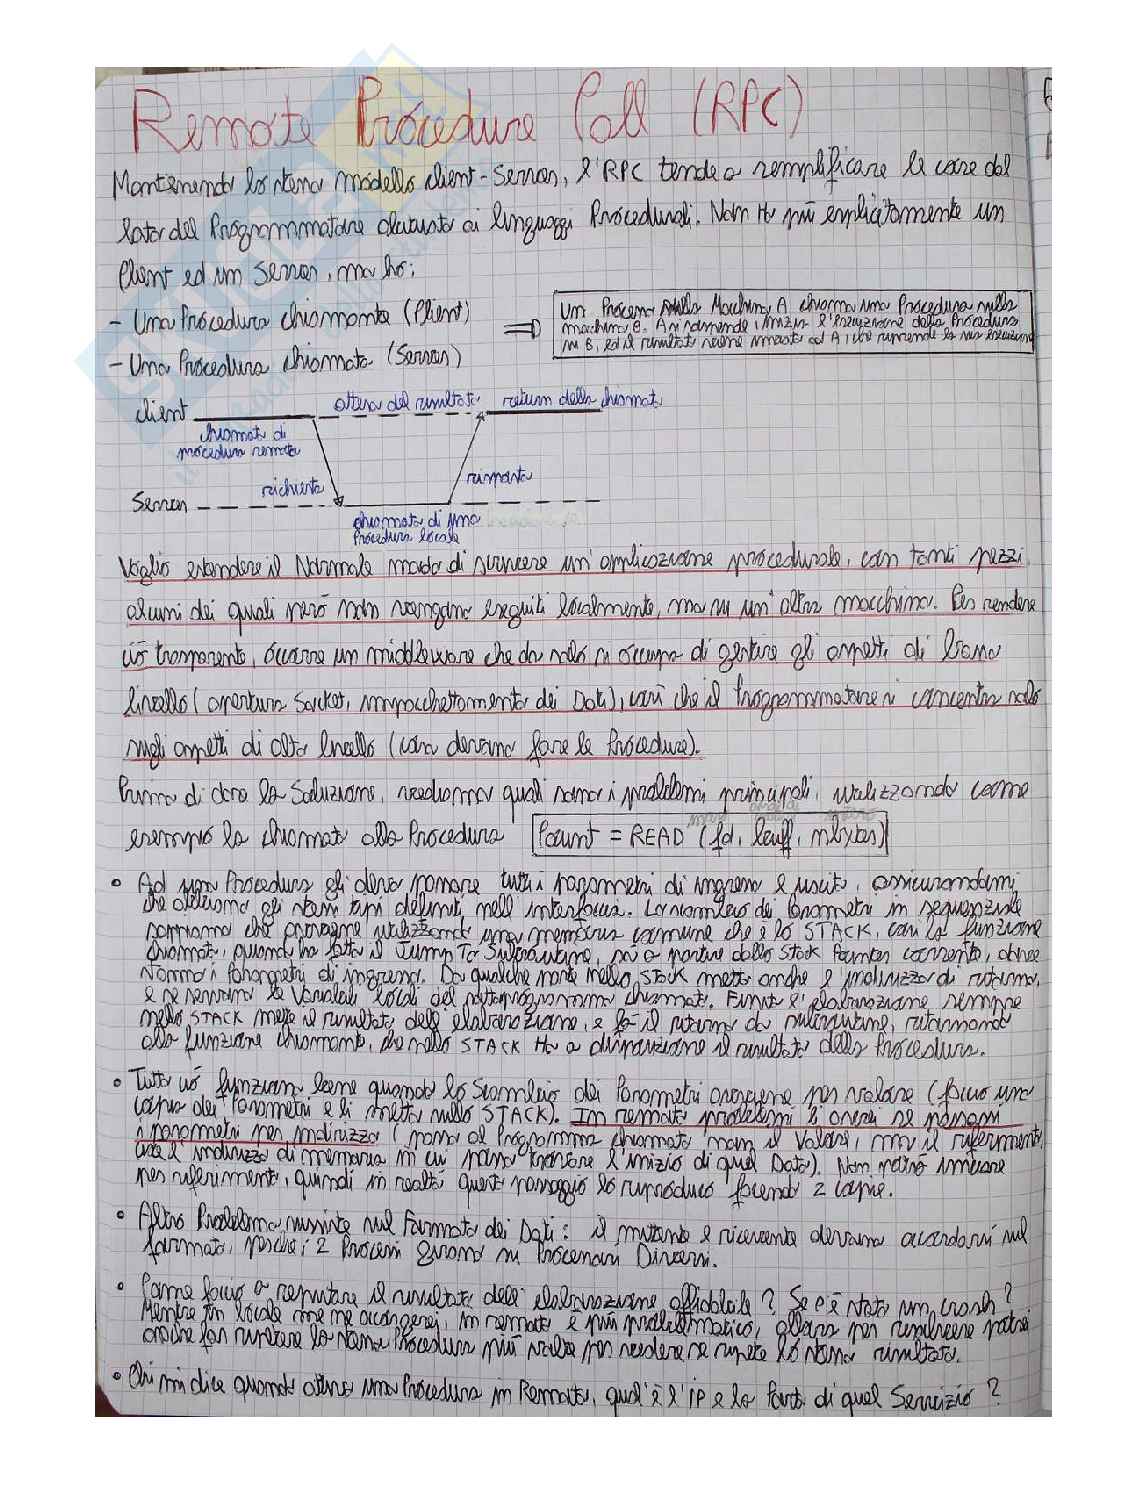 Remote Procedure Call (RPC)
Mantenendo lo stesso modello client-Server, l'RPC tende a semplificare le cose dal
lato del Programmatore abituato ai linguaggi Procedurali. Non Ho più esplicitamente un
Client ed un Server, ma ho:
- Una Procedura chiamante (Client)
- Una Procedura chiamata (Server)
=> Un Processo sulla Macchina A chiama una Procedura nella
macchina B. A si sospende, inizia l'esecuzione della Procedura
su B, ed il risultato viene inviato ad A, che riprende la sua esecuzione
client
attesa del risultato
return della chiamata
chiamata di
procedura remota
richiesta
risposta
Server
chiamata di una
Procedura locale
Voglio estendere il Normale modo di scrivere un'applicazione procedurale, con tanti pezzi
alcuni dei quali però non vengono eseguiti localmente, ma su un'altra macchina. Per rendere
ciò trasparente, occorre un middleware che da solo si occupa di gestire gli aspetti di basso
livello (apertura Socket, impacchettamento dei Dati), così che il Programmatore si concentra solo
sugli aspetti di alto livello (cosa devono fare le Procedure).
Prima di dare la Soluzione, vediamo quali sono i problemi principali, utilizzando come
esempio la chiamata alla Procedura Count = READ (fd, buff, nbytes)
• Ad una Procedura gli devo passare tutti i parametri di ingresso e uscita, assicurandomi
che abbiano gli stessi tipi definiti nell'interfaccia. Lo scambio dei Parametri in sequenziale
sappiamo che avviene utilizzando una memoria comune che è lo STACK, così la funzione
chiamata, quando ha fatto il Jump To Subroutine, sa a partire dallo Stack Pointer corrente, dove
stanno i Parametri di ingresso. Da qualche parte nello STACK metto anche l'indirizzo di ritorno,
e se servono le Variabili locali del sottoprogramma chiamato. Finita l'elaborazione sempre
nello STACK mette il risultato dell'elaborazione, e fa il return da subroutine, ritornando
alla funzione chiamante, che nello STACK Ha a disposizione il risultato della Procedura.
• Tutto ciò funziona bene quando lo Scambio dei Parametri avviene per valore (faccio una
copia dei Parametri e li metto nello STACK). In remoto problemi ci sono se passassi
i parametri per indirizzo (passo al Programma chiamato non il Valore, ma il riferimento
cioè l'indirizzo di memoria in cui posso trovare l'inizio di quel Dato). Non potrò inviare
per riferimento, quindi in realtà questo passaggio lo riproduco facendo 2 copie.
• Altro Problema sussiste sul Formato dei Dati: il mittente e ricevente devono accordarsi sul
formato, perché i 2 Processi girano su Processori Diversi.
• Come faccio a reputare il risultato dell'elaborazione affidabile? Se c'è stato un crash?
Mentre in locale me ne accorgerei, in remoto è più problematico, allora per risolvere potrei
anche far ripetere la stessa Procedura più volte per vedere se ripete lo stesso risultato.
• Chi mi dice quando attivo una Procedura in Remoto, qual'è l'IP e la Porta di quel Servizio?